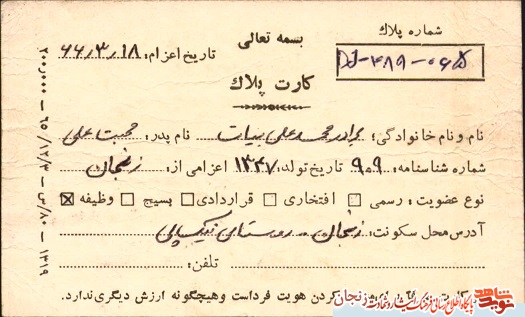 بسمه تعالی
شماره پلاك
تاریخ اعزام: ۶۶/۳/۱۸
DJ-۴۸۹-۰۶۵
کارت پلاك
نام و نام خانوادگی: برادر محمدعلی بیات نام پدر: محبت علی
شماره شناسنامه: ۹۰۹ تاریخ تولد: ۱۳۴۷ اعزامی از: زنجان
نوع عضویت: رسمی □ افتخاری □ قراردادی □ بسیج □ وظیفه ☒
آدرس محل سکونت: زنجان - روستای نیک پی
تلفن:
کردن هویت فرداست وهیچگونه ارزش دیگری ندارد.
نوید شاهد
پایگاه اطلاع رسانی فرهنگ ایثار و شهادت زنجان